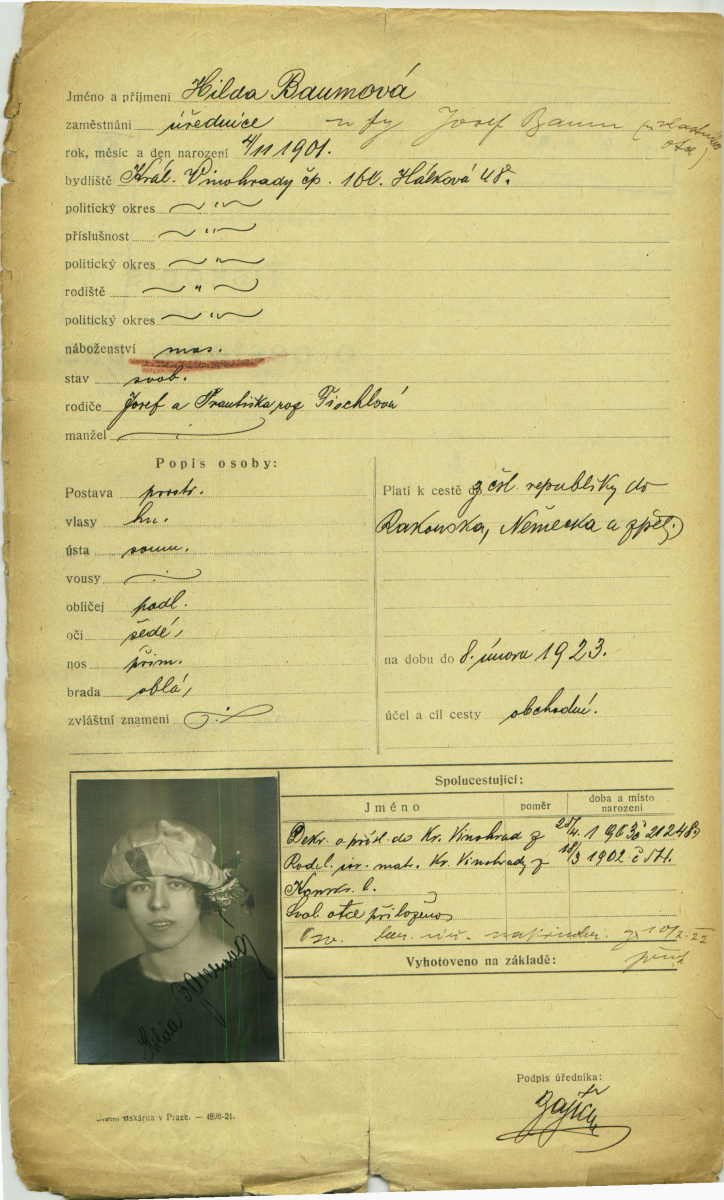 Jméno a příjmení Hilda Baumová
zaměstnání úřednice u fy Josef Baum (u vlastního otce)
rok, měsíc a den narození 4/11 1901.
bydliště Král. Vinohrady čp. 164. Hálková 48.
politický okres — " —
příslušnost — " —
politický okres — " —
rodiště — " —
politický okres — " —
náboženství mos.
stav svob.
rodiče Josef a Františka roz
manžel
Popis osoby:
Postava prostř.
vlasy hn.
ústa soum.
vousy
obličej podl.
oči šedé,
nos přim.
brada oblá,
zvláštní znamení
Platí k cestě do z čsl. republiky do
Rakouska, Německa a zpět.)
na dobu do 8. února 1923.
účel a cíl cesty obchodní.
Spolucestující:
Jméno poměr doba a místo narození
Dekr. o přísl. do Kr. Vinohrad z
Rodel. isr. mat. Kr. Vinohrady z 18/3 1902
Konskr. l.
Svol. otce přiloženo
Vyhotoveno na základě:
Hilda Baumová
Podpis úředníka:
tiskárna v Praze. —